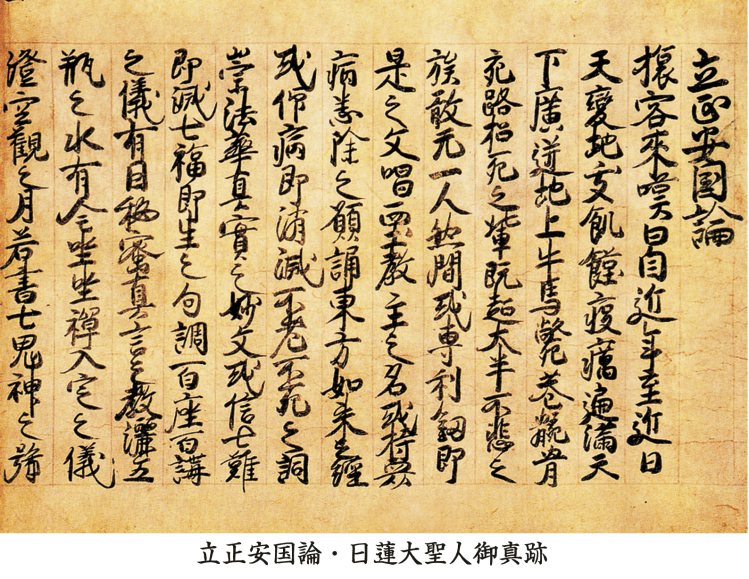 立正安国論
旅客來嘆曰自近年至近日
天變地夭飢饉疫癘遍滿天
下廣迸地上牛馬斃巷骸骨
充路招死之輩既超大半不悲之
族敢无一人然間或專利劔即
是之文唱西土教主之名或恃衆
病悉除之願誦東方如來之經
或仰病即消滅不老不死之詞
崇法華真實之妙文或信七難
即滅七福即生之句調百座百講
之儀有因秘蜜真言之教灑五
瓶之水有全坐禪入定之儀
澄空觀之月若書七鬼神之號
立正安国論・日蓮大聖人御真跡